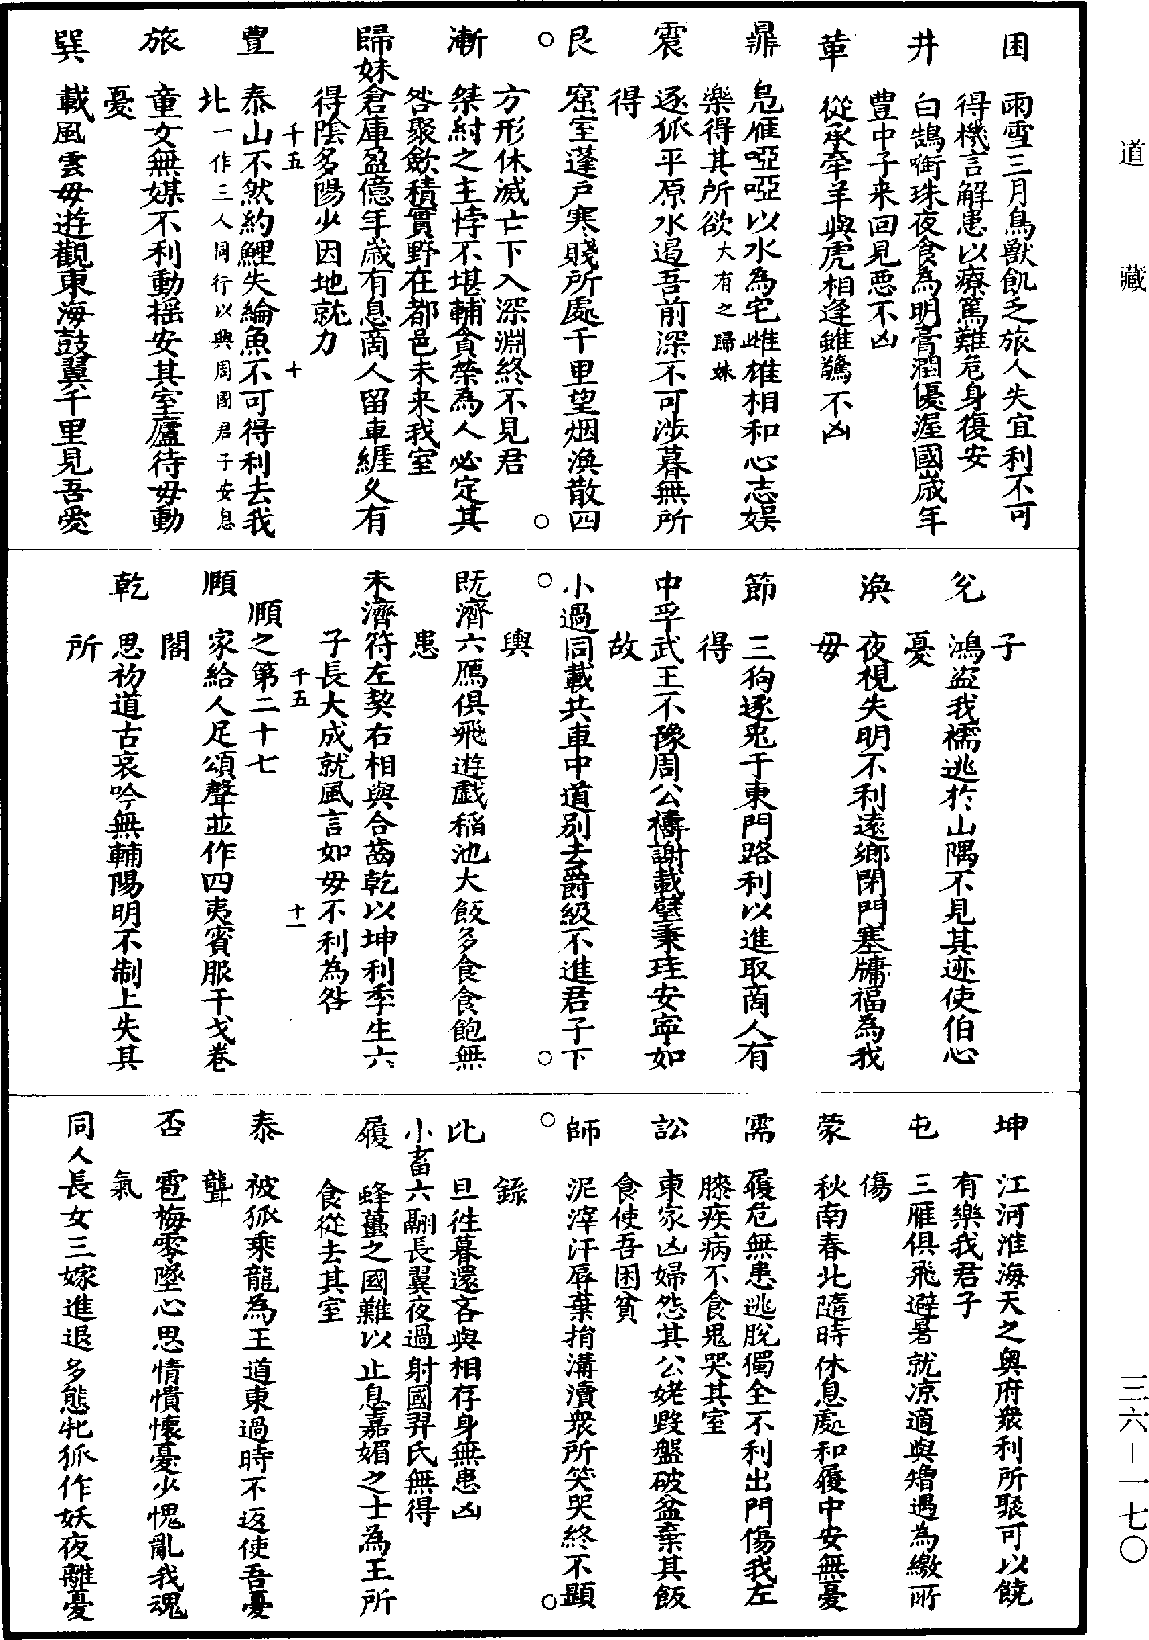 道藏
困　雨雪三月鳥獸飢乏旅人失宜利不可
得機言解患以療篤難危身復安
井　白鵠銜珠夜食為明膏潤優渥國歲年
豊中子来回見惡不凶
革　從承牽羊與虎相逢雖驚不凶
鼎　鳬雁啞啞以水為宅雌雄相和心志娱
樂得其所欲大有之歸妹
震　逐狐平原水遏吾前深不可涉暮無所
得
艮　窟室蓬戶寒賤所處千里望烟渙散四
○　　○
方形休滅亡下入深淵終不見君
漸　桀紂之主悖不堪輔貪榮為人必定其
咎聚歛積實野在都邑未来我室
歸妹倉庫盈億年歲有息商人留車纒乆有
得陰多陽少因地就力
千五　十
豊　泰山不然約鯉失綸魚不可得利去我
北一作三人同行以與周國君子安息
旅　童女無媒不利動揺安其室廬待毋動
憂
巽　載風雲毋遊觀東海鼓翼千里見吾愛
子
兊　鴻盜我襦逃於山隅不見其迹使伯心
憂
渙　夜視失明不利遠鄉閉門塞牗福為我
毋
節　三狗逐兎于東門路利以進取商人有
得
中孚武王不豫周公禱謝載璧秉珪安寜如
故
小過同載共車中道別去爵級不進君子下
○　　○
輿
既濟六鴈俱飛遊戲稲池大飲多食食飽無
患
未濟符左契右相與合齒乾以坤利季生六
子長大成就風言如毋不利為咎
千五　十一
順之第二十七
順　家給人足頌聲並作四夷賓服干戈卷
閣
乾　思初道古哀吟無輔陽明不制上失其
所
坤　江河淮海天之奥府衆利所聚可以饒
有樂我君子
屯　三雁俱飛避暑就凉適與矰遇為繳所
傷
蒙　秋南春北隨時休息處和履中安無憂
需　履危無患逃脫獨全不利出門傷我左
膝疾病不食鬼哭其室
訟　東家凶婦怨其公姥毀盤破盆棄其飯
食使吾困貧
師　泥滓汙辱棄捐溝瀆衆所笑哭終不顯
○　　○
錄
比　旦徃暮還各與相存身無患凶
小畜六翮長翼夜過射國羿氏無得
履　蜂蠆之國難以止息嘉媚之士為王所
食從去其室
泰　被狐乘龍為王道東過時不返使吾憂
聾
否　雹梅零墜心思情憒懷憂少愧亂我魂
氣
同人長女三嫁進退多態牝狐作妖夜離憂
三六—一七〇